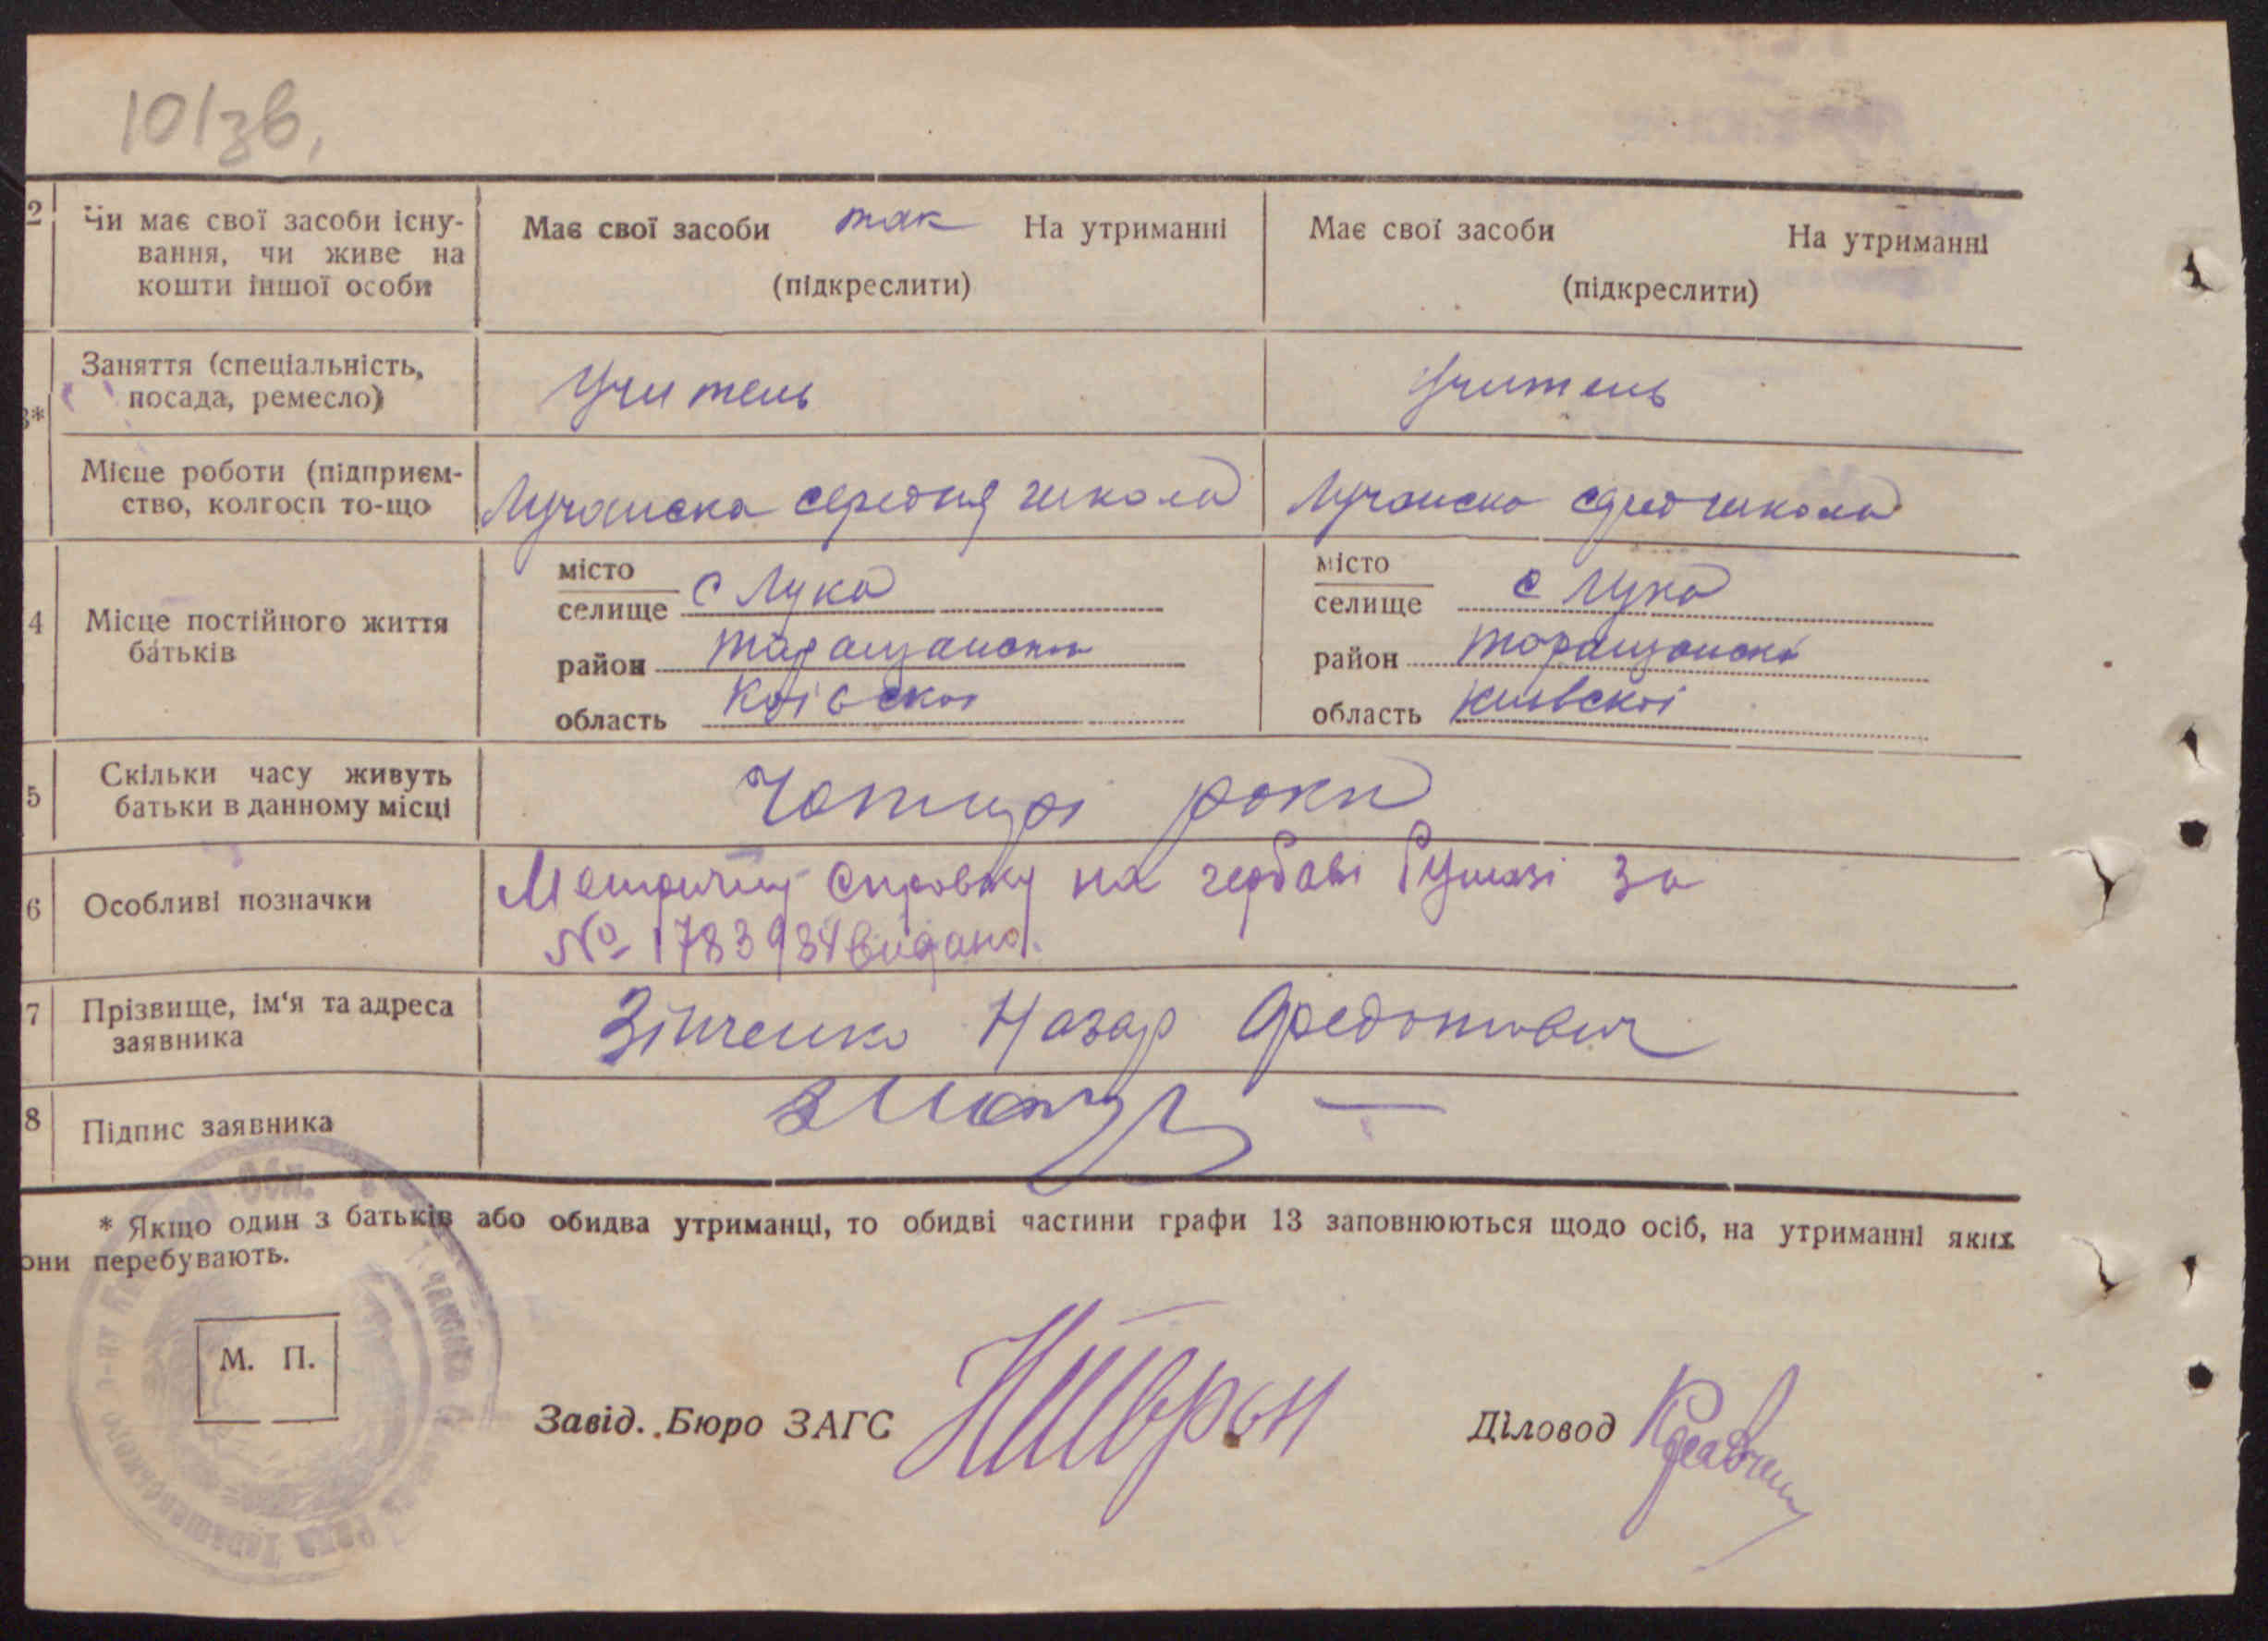 101зв,
2 Чи має свої засоби існу-
вання, чи живе на
кошти іншої особи
Має свої засоби так На утриманні
(підкреслити)
Має свої засоби На утриманні
(підкреслити)
3* Заняття (спеціальність,
посада, ремесло)
Учитель
Учитель
Місце роботи (підприєм-
ство, колгосп то-що
Лучанска середня школа
Лучанска школа
4 Місце постійного життя
батьків
місто
селище с Лука
район Таращански
область
місто
селище с Лука
район Таращанскі
область Киівскоі
5 Скільки часу живуть
батьки в данному місці
Чотирі роки
6 Особливі позначки
Метричну справку на гербаві бумазі за
№ 1783934 видано.
7 Прізвище, ім'я та адреса
заявника
Зінченко Назар Федотович
8 Підпис заявника
* Якщо один з батьків або обидва утриманці, то обидві частини графи 13 заповнюються щодо осіб, на утриманні яких
они перебувають.
М. П.
Завід. Бюро ЗАГС
Діловод